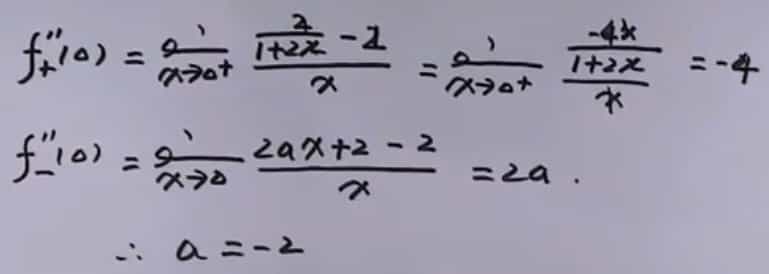 f₊''(0) = lim_{x→0⁺} \frac{\frac{2}{1+2x} - 2}{x} = lim_{x→0⁺} \frac{\frac{-4x}{1+2x}}{x} = -4
f₋''(0) = lim_{x→0} \frac{2ax+2-2}{x} = 2a.
∴ a = -2